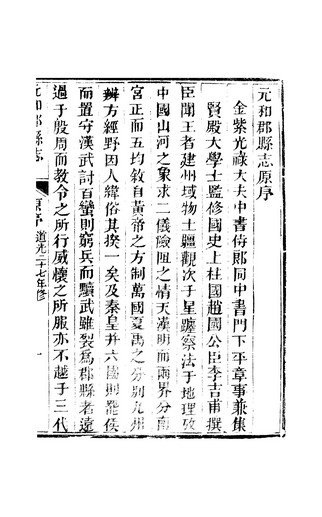 元和郡縣志原序
金紫光祿大夫中書侍郎同中書門下平章事兼集
賢殿大學士監修國史上柱國趙國公臣李吉甫撰
臣聞王者建州域物土疆觀次于星躔察法于地理攷
中國山河之象求二儀險阻之情天漢明而兩界分南
宮正而五均敘自黃帝之方制萬國夏禹之分別九州
辨方經野因人緯俗其揆一矣及秦皇并六國則罷侯
而置守漢武討百蠻則窮兵而黷武雖裂爲郡縣者遠
過于殷周而教令之所行威懷之所服亦不越于三代
元和郡縣志
原序
道光二十七年修
一